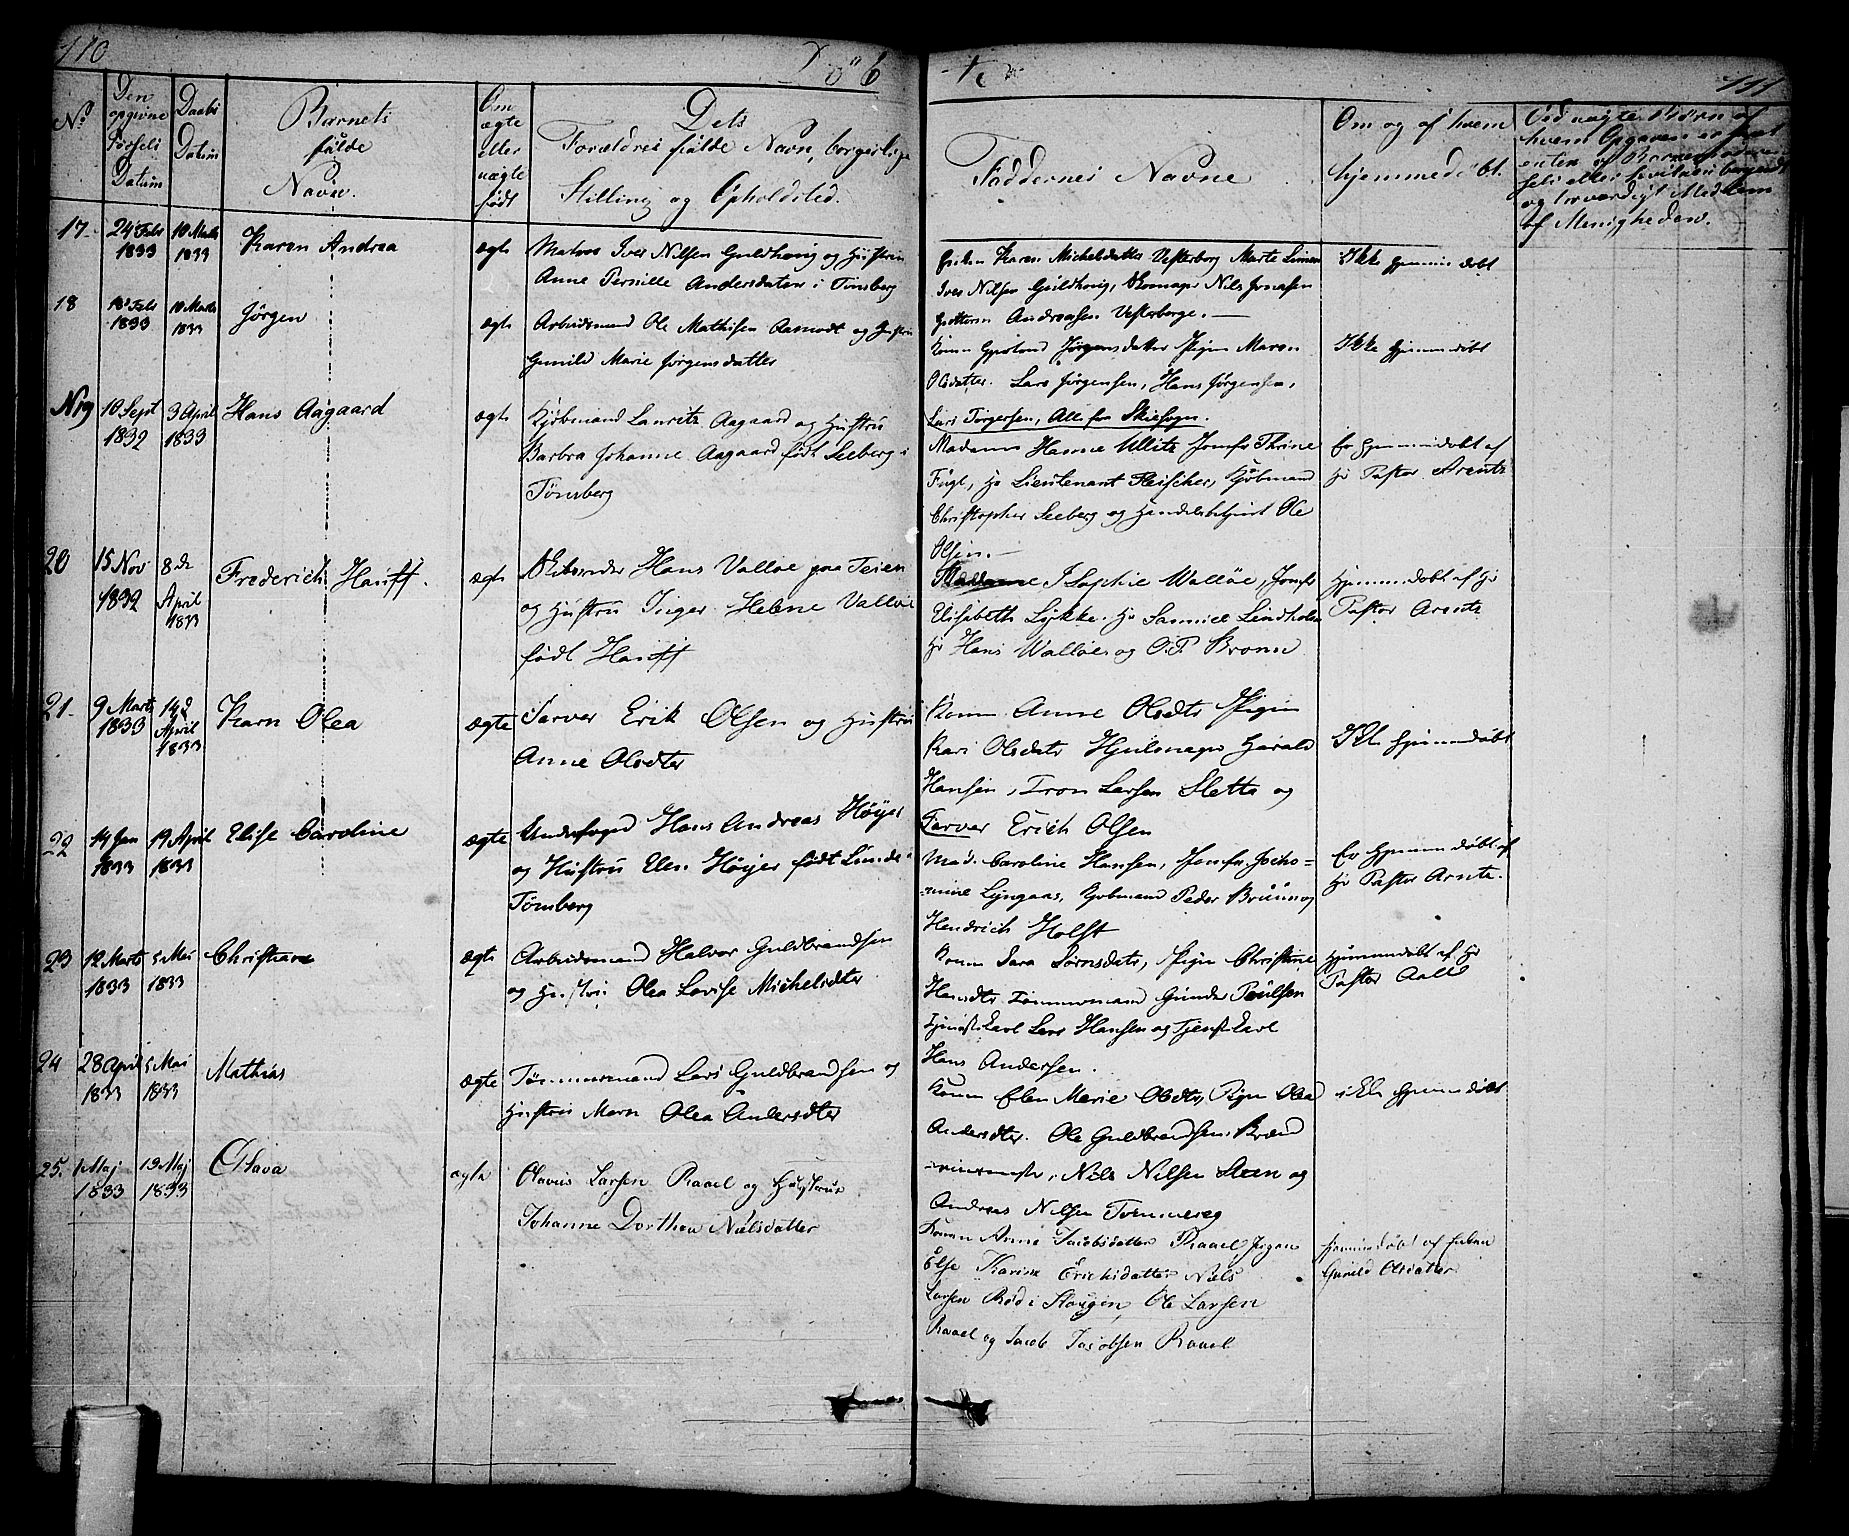 110
Döb
te
111
No
Den opgivne Førsels Datum
Daabs Datum
Barnets fulde Navn.
Om ægte eller uægte født
Dets Forældres fulde Navn, borgerlige Stilling og Opholdsted.
Faddernes Navne
Om og af hvem hjemmedøbt.
Ved uægte Børn af
hvem Opgaven er skeet
enten af Barnemoderen
selv eller
og troværdigt Medlem
af Menigheden.
17-
24 Febr 1833
10 Marts 1833
Karen Andrea
ægte
Matros Iver Nilsen Guldhoug og Hustru
Anne Pernille Andersdatter i Tønsberg
Enken Karen Michelsdatter Vesterborg Marte Simen
Iver Nilsen Guldhoug, Skomager Nils Jonassen
Guttorm Andreasen Vesterborge. —
Ikke hjemmedøbt
18
18 Febr 1833
10 Marts 1833
Jørgen
ægte
Arbeidsmand Ole Mathisen Aamodt og Hustru
Gunild Marie Jørgensdatter
Konen Jørgensdatter Pigen Maren
Olsdatter. Lars Jørgensen, Hans Jørgensen,
Lars Torgersen, Alle fra Skiesogn.
Ikke hjemmedøbt
N19
10 Sept 1832
3 April 1833
Hans Aagaard
ægte
Kjøbmand Lauritz Aagaard og Hustru
Barbra Johanne Aagaard født Seeberg i
Tønsberg
Madame Hanne Ullitz Jomfr Thrine
Fugl, Hr Lieutenant Fleischer, Kjøbmand
Christopher Seeberg og Handelsbetjent Ole
Olsen. —
Er hjemmedøbt af
Hr Pastor Arentz
20
15 Nov 1832
8de April 1833
Frederich Hanff.
ægte
Skibsreder Hans Valløe paa Teien
og Hustru Inger Helene Valløe
født Hanff
Madame I Sophie Walløe, Jomfr
Elisabeth Lykke. Hr Samuel Lindholm
Hr Hans Walløe og O. P. Bronn
Hjemmedøbt af Hr
Pastor Arentz
21-
9 Marts 1833
14d April 1833
Karn Olea
ægte
Farver Erik Olsen og Hustru
Anne Olsdter
Konen Anne Olsdtr Pigen
Kari Olsdatr Hjulmager Harald
Hansen, Tron Larsen Sletta og
Farver Erich Olsen
Ikke hjemmedøbt
22
14 Jan 1833
19 April 1833
Elise Caroline
ægte
Underfoged Hans Andreas Höyer
og Hustru Elen Höyer født Lunde i
Tönsberg
Mad. Caroline Hansen, Jomfr. Jocho=
=mine Lyngaas, Kjøbmand Peder Bruun og
Hendrich Holst
Er hjemmedøbt af
Hr Pastor Arntz.
23
12 Marts 1833
5 Mai 1833
Christiane
ægte
Arbeidsmand Halvor Guldbrandsen
og Hustru Olea Lovise Michelsdter
Konen Sara Sørnsdatr, Pigen Christine
Hansdtr. Tømmermand Gunder Poulsen
Tjenestkarl Lars Hansen og Tjenstkarl
Hans Andersen.
Hjemmedøbt af Hr
Pastor Aall
24
28 April 1833
5 Mai 1833
Mathias
ægte
Tömmermand Lars Guldbrandsen og
Hustru Maren Olea Andersdter
Konen Elen Marie Olsdtr, Pigen Olea
Andersdter. Ole Guldbrandsen, Brænd
=viinsmester, Nils Nilsen Steen og
Andreas Nilsen Tømmereg
ikke hjemmedøbt
25.
1 Maj 1833
19 Maj 1833
Olava
ægte
Olavus Larsen Raael og Hustrue
Johanne Dorthea Nielsdatter
Konen Anne Jacobsdatter Raael, Pigen
Else Karine Erichsdatter Niels
Larsen Röd i Skougen, Ole Larsen
Raael og Jacob Jacobsen Raael
hjemmedøbt af Enken
Gunild Olsdatter